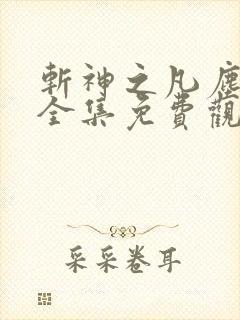 斬神之凡塵
全集免費觀
采采卷耳